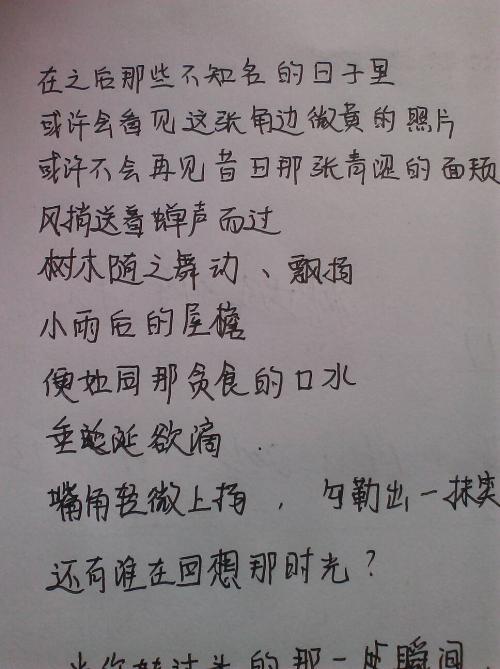 在之后那些不知名的日子里
或许会看见这张角边微黄的照片
或许不会再见昔日那张青涩的面颊
风捎送着蝉声而过
树木随之舞动、飘扬
小雨后的屋檐
便如同那贪食的口水
垂涎欲滴
嘴角轻微上扬，勾勒出一抹笑
还有谁在回想那时光？
当你转过头的那一瞬间